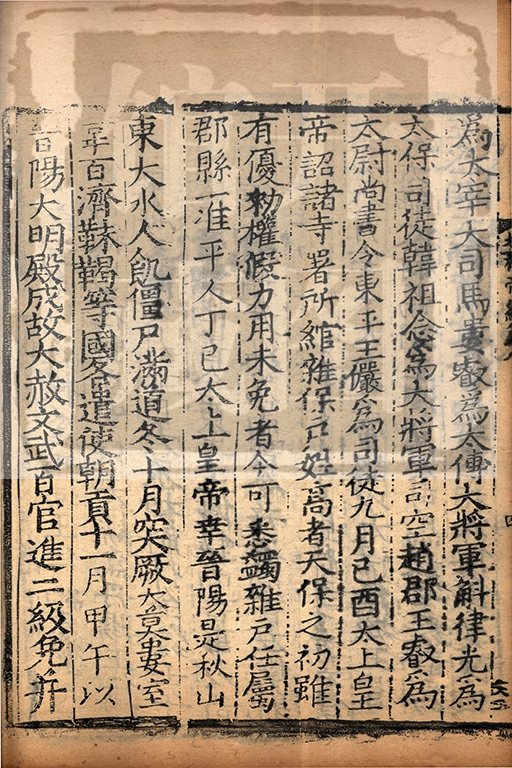 爲太宰大司馬婁叡爲太傅大將軍斛律光爲
太保司徒韓祖念爲大將軍司空趙郡王叡爲
太尉尚書令東平王儼爲司徒九月己酉太上皇
帝詔諸寺署所綰雜保戶姓高者天保之初雖
有優勑權假力用未免者今可悉蠲雜戶任屬
郡縣一准平人丁巳太上皇帝幸晉陽是秋山
東大水人飢僵尸滿道冬十月突厥大莫婁室
韋百濟靺鞨等國各遣使朝貢十一月甲午以
晉陽大明殿成故大赦文武百官進二級免并